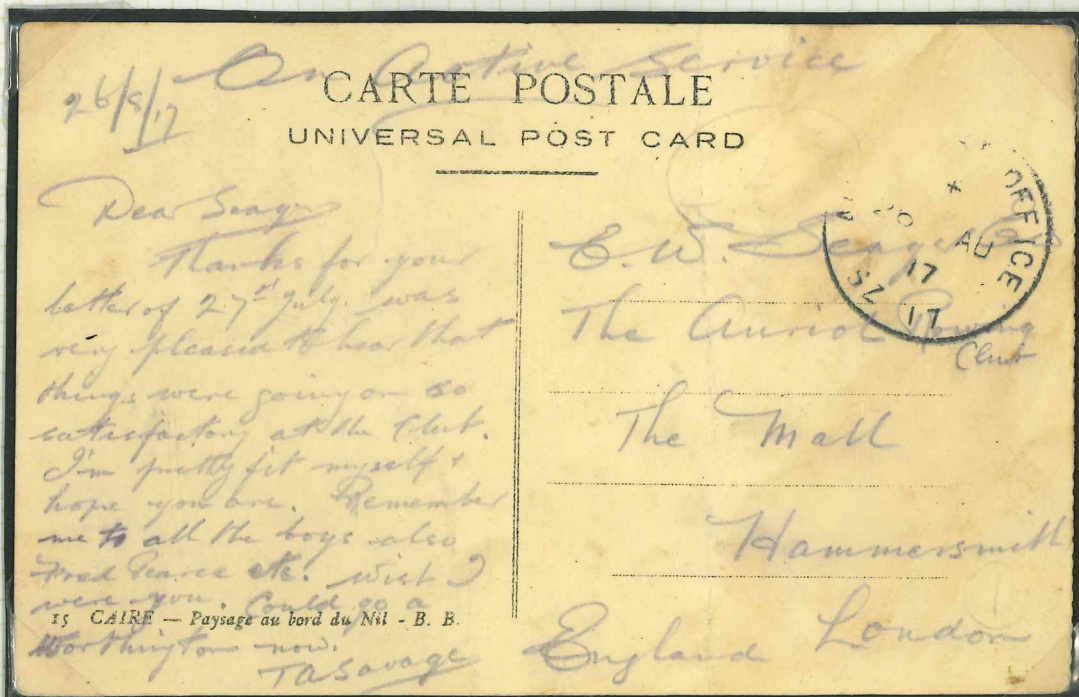 On Active Service
26/8/17
CARTE POSTALE
UNIVERSAL POST CARD
Dear Seager
Thanks for your
letter of 27th July. was
very pleased to hear that
things were going on so
satisfactory at the Club.
I'm pretty fit myself +
hope you are. Remember
me to all the boys also
Fred Pearce etc. Wish I
were you. Could go a
Worthington now.
TASavage
15 CAIRE — Paysage au bord du Nil - B. B.
OFFICE
AU
17
SZ 17
E. W. Seager
The Auriol Rowing
Club
The Mall
Hammersmith
London
England